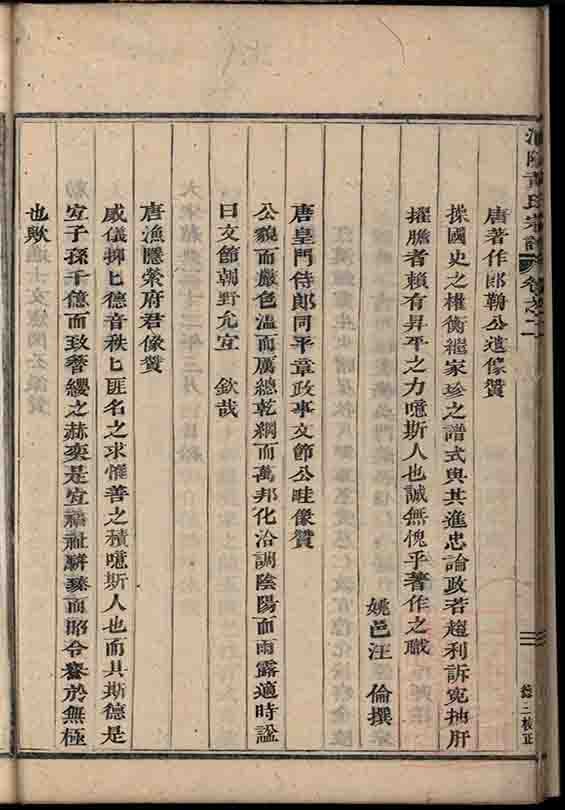 氏宗譜 卷之二
唐著作郎勒公遺像贊
操國史之權衡繼家珍之譜式與其進忠論政若趨利訴寃抽肝
擢膽者賴有昇平之力噫斯人也誠無愧乎著作之職
姚邑汪 倫撰
唐皇門侍郎同平章政事文節公眭像贊
公貌而嚴色溫而厲總乾綱而萬邦化洽調陰陽而雨露適時謚
曰文節朝野允宜 欽哉
唐漁隱縈府君像贊
威儀抑匕德音秩匕匪名之求惟善之積噫斯人也而具斯德是
宜子孫千億而致簪纓之赫奕是宜福祉駢臻而昭令譽於無極
也歟
三
校正